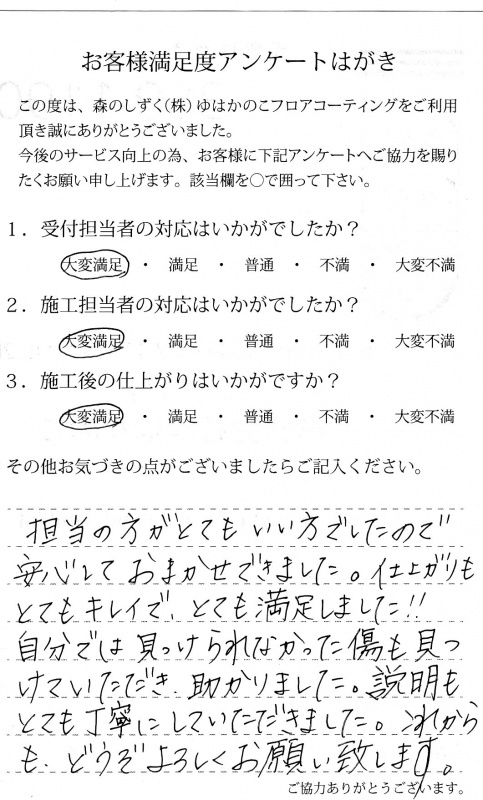 お客様満足度アンケートはがき
この度は、森のしずく(株)ゆはかのこフロアコーティングをご利用
頂き誠にありがとうございました。
今後のサービス向上の為、お客様に下記アンケートへご協力を賜り
たくお願い申し上げます。該当欄を○で囲って下さい。
1．受付担当者の対応はいかがでしたか？
大変満足 ・ 満足 ・ 普通 ・ 不満 ・ 大変不満
2．施工担当者の対応はいかがでしたか？
大変満足 ・ 満足 ・ 普通 ・ 不満 ・ 大変不満
3．施工後の仕上がりはいかがですか？
大変満足 ・ 満足 ・ 普通 ・ 不満 ・ 大変不満
その他お気づきの点がございましたらご記入ください。
担当の方がとてもいい方でしたので
安心しておまかせできました。仕上がりも
とてもキレイで、とても満足しました!!
自分では見つけられなかった傷も見つ
けていただき、助かりました。説明も
とても丁寧にしていただきました。これから
も、どうぞよろしくお願い致します。
ご協力ありがとうございます。